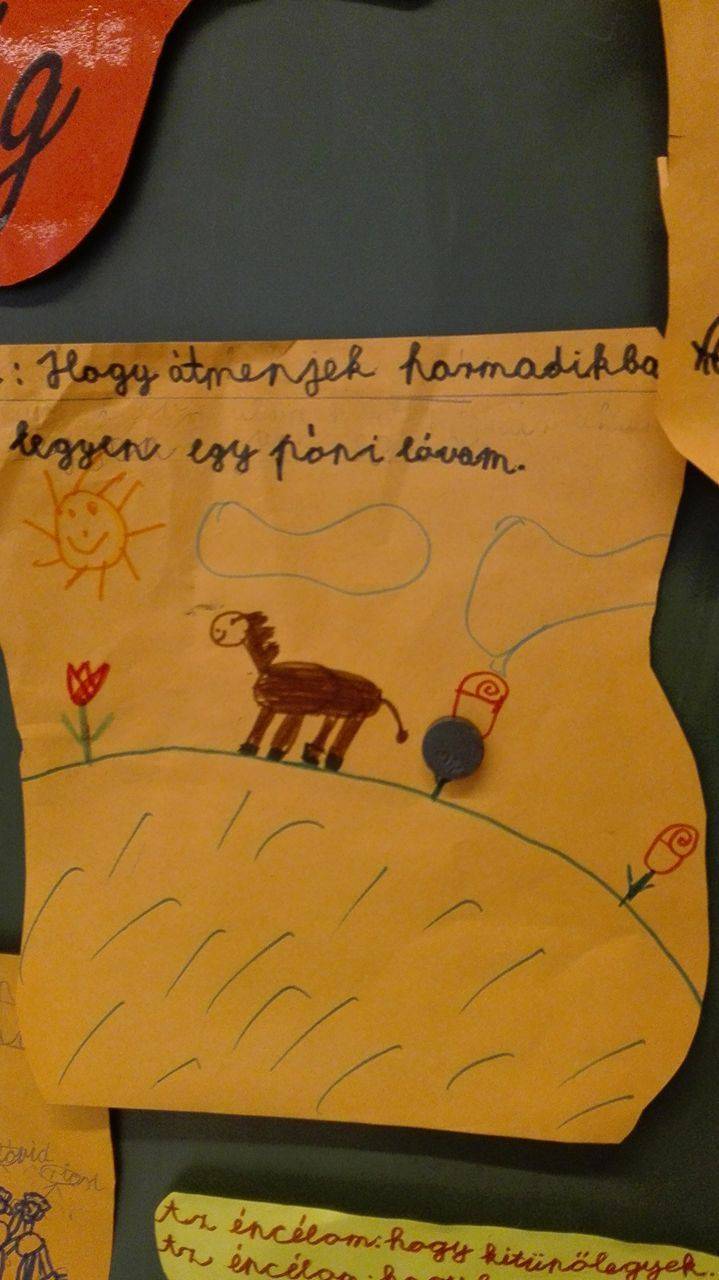 g
: Hogy átmenjek harmadikba
legyen egy póni lóvam.
Az éncélom: hogy kitünőlegyek.
Az éncélom: hogy